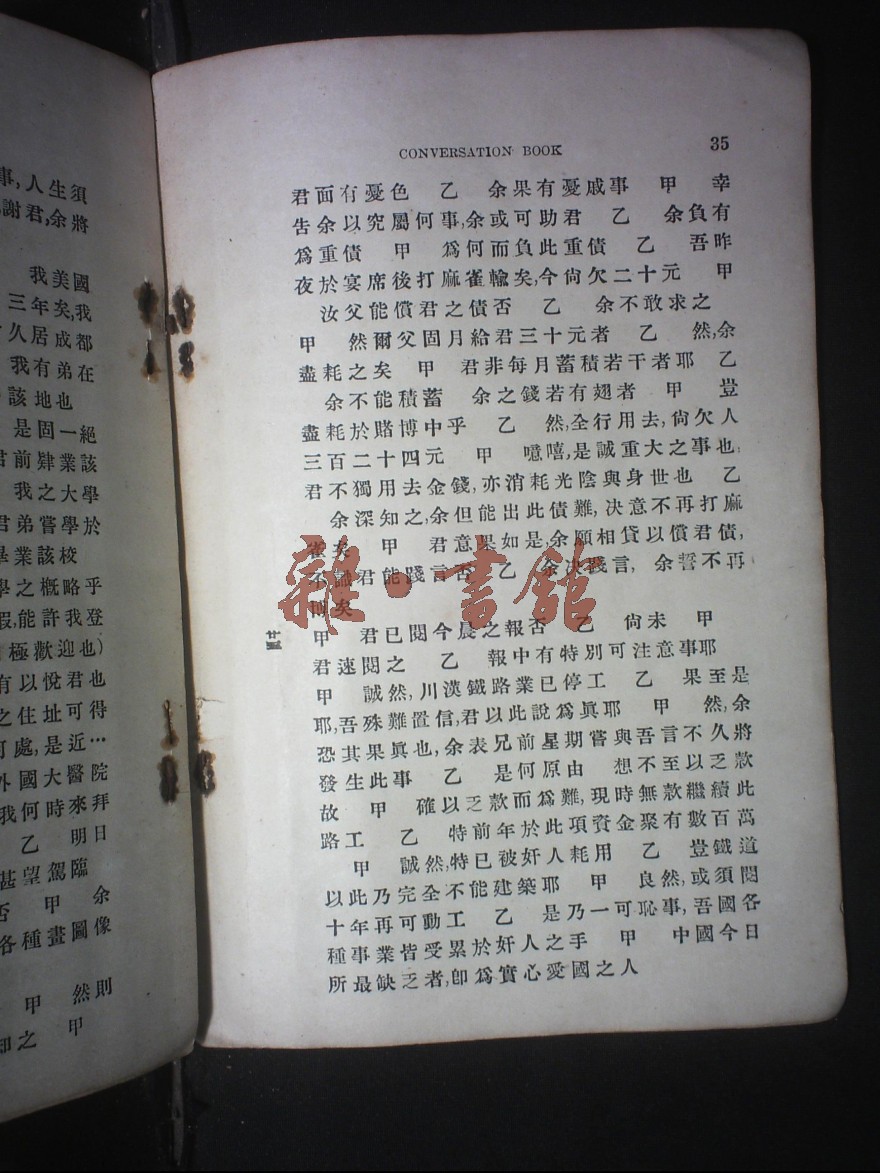 事,人生須
謝君,余將
我美國
三年矣,我
久居成都
我有弟在
該地也
是固一絕
君前肄業該
我之大學
君弟嘗學於
畢業該校
學之概略乎
假,能許我登
極歡迎也)
有以悅君也
之住址可得
何處,是近…
外國大醫院
我何時來拜
乙 明日
甚望駕臨
否 甲 余
各種畫圖像
甲 然則
知之 甲
CONVERSATION BOOK 35
君面有憂色 乙 余果有憂戚事 甲 幸
告余以究屬何事,余或可助君 乙 余負有
爲重債 甲 爲何而負此重債 乙 吾昨
夜於宴席後打麻雀輸矣,今尙欠二十元 甲
汝父能償君之債否 乙 余不敢求之
甲 然爾父固月給君三十元者 乙 然,余
盡耗之矣 甲 君非每月蓄積若干者耶 乙
余不能積蓄 余之錢若有翅者 甲 豈
盡耗於賭博中乎 乙 然,全行用去,尙欠人
三百二十四元 甲 噫嘻,是誠重大之事也,
君不獨用去金錢,亦消耗光陰與身世也 乙
余深知之,余但能出此債難,决意不再打麻
雀矣 甲 君意果如是,余願相貸以償君債,
不識君能踐言否 乙 余决踐言, 余誓不再
博矣
十四
甲 君已閱今晨之報否 乙 尙未 甲
君速閱之 乙 報中有特別可注意事耶
甲 誠然,川漢鐵路業已停工 乙 果至是
耶,吾殊難置信,君以此說爲眞耶 甲 然,余
恐其果眞也,余表兄前星期嘗與吾言不久將
發生此事 乙 是何原由 想不至以乏款
故 甲 確以乏款而爲難,現時無款繼續此
路工 乙 特前年於此項資金聚有數百萬
甲 誠然,特已被奸人耗用 乙 豈鐵道
以此乃完全不能建築耶 甲 良然,或須閱
十年再可動工 乙 是乃一可恥事,吾國各
種事業皆受累於奸人之手 甲 中國今日
所最缺乏者,卽爲實心愛國之人
雜·書館